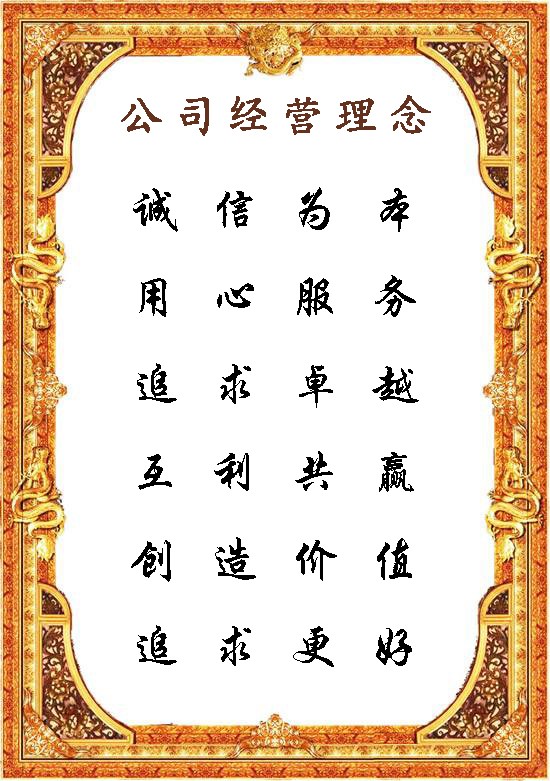 公司经营理念
诚信为本
用心服务
追求卓越
互利共赢
创造价值
追求更好